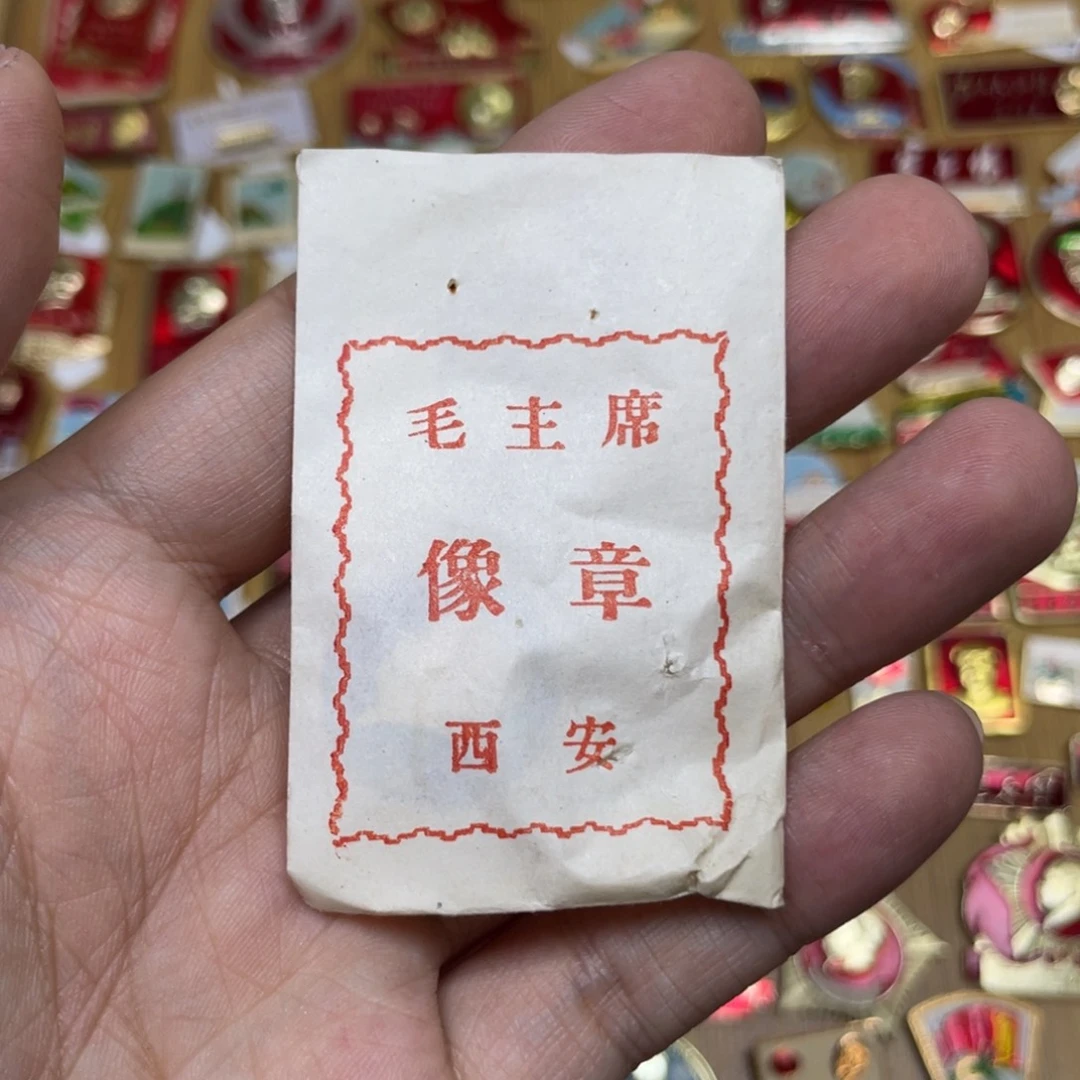 毛主席
像章
西安